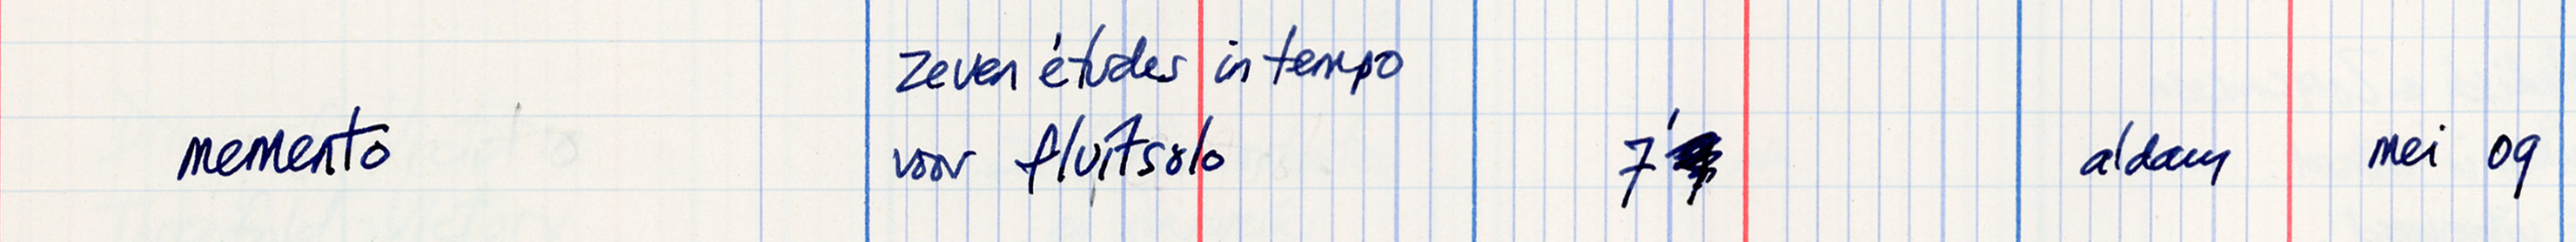 zeven études in tempo
memento voor fluitsolo 7' a'dam mei 09